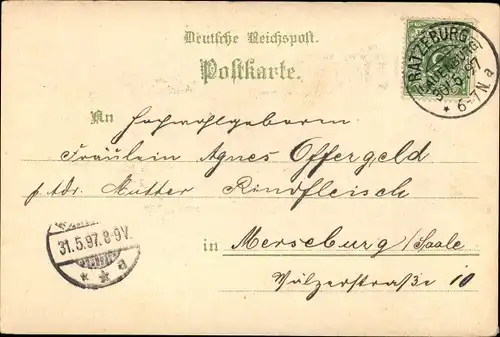 Deutsche Reichspost.
Postkarte.
RATZEBURG
(LAUENBURG)
30.5.97
6-7N. a
An Hochwohlgeboren
Fräulein Agnes Offergeld
p. Adr. Mutter Rindfleisch
in Merseburg/Saale
31.5.97. 8-9V.
a